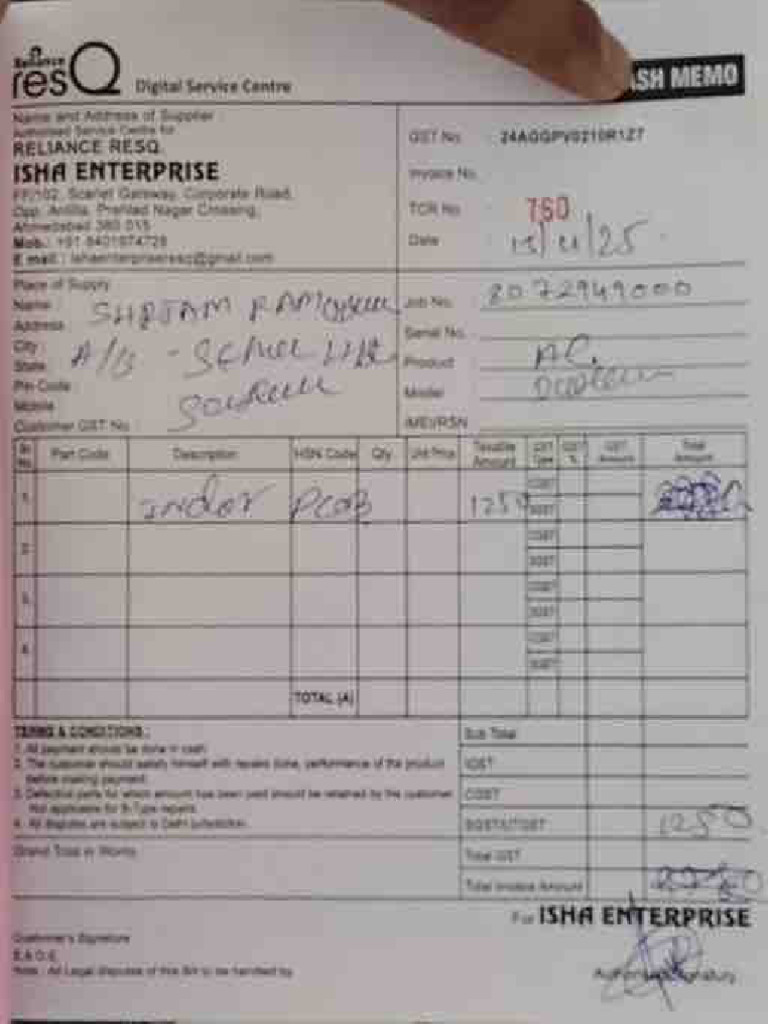 Reliance
resQ Digital Service Centre
ASH MEMO
Name and Address of Supplier
Authorised Service Centre for
RELIANCE RESQ.
ISHA ENTERPRISE
FF/102, Scarlet Gateway, Corporate Road,
Opp. Antilia, Prahlad Nagar Crossing,
Ahmedabad 380 015
Mob.: +91 8401974728
E mail : ishaenterpriseresq@gmail.com
GST No. 24AGGPV0210R1Z7
Invoice No.
TCR No. 760
Date 15/11/25
Place of Supply
Name
Address
City
State
Pin Code
Mobile
Customer GST No.
SHRJAM
A/B -
Job No. 8072949000
Serial No.
Product AC.
Model
IMEI/RSN
Sr. No. Part Code Description HSN Code Qty. Unit Price Taxable Amount GST Type GST % GST Amount Total Amount
1. indor PCB 1250 CGST
SGST
2. CGST
SGST
3. CGST
SGST
4. CGST
SGST
TOTAL (A)
TERMS & CONDITIONS :
1. All payment should be done in cash
2. The customer should satisfy himself with repairs done, performance of the product
before making payment.
3. Defective parts for which amount has been paid should be retained by the customer.
Not applicable for B-Type repairs.
4. All disputes are subject to Delhi jurisdiction.
Sub Total
IGST
CGST
SGST/UTGST 1250
Grand Total in Words
Total GST
Total Invoice Amount
For ISHA ENTERPRISE
Customer's Signature
E.&.O.E.
Note : All Legal disputes of this Bill to be handled by
Authorised Signatory